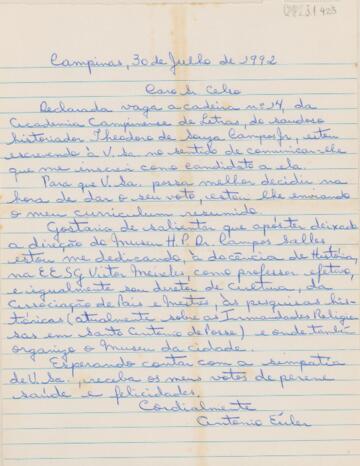 Campinas, 30 de Julho de 1992
Caro Sr. Celso
Declarada vaga a cadeira nº 24, da
Academia Campinense de Letras, do saudoso
historiador Theodoro de Souza Campos Jr, estou
escrevendo à V.Sa. no sentido de comunicar-lhe
que me inscrevi como candidato a ela.
Para que V.Sa. possa melhor decidir na
hora de dar o seu voto, estou lhe enviando
o meu curriculum resumido.
Gostaria de salientar que após ter deixado
a direção do Museu H.P. Dr. Campos Salles
estou me dedicando, à docência de História,
na EESG Vitor Meireles, como professor efetivo,
e igualmente sou diretor de Cultura, da
Associação de Pais e Mestres, às pesquisas his-
tóricas (atualmente sobre as Irmandades Religio-
sas em Santo Antonio de Posse) e onde também
organizo o Museu da cidade.
Esperando contar com a simpatia
de V.Sa., receba os meus votos de perene
saúde e felicidades.
Cordialmente
Antonio Euler